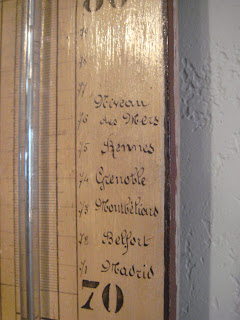 80
79
78
77
Niveau
76 des Mers
75 Rennes
74 Grenoble
73 Montbéliard
72 Belfort
71 Madrid
70